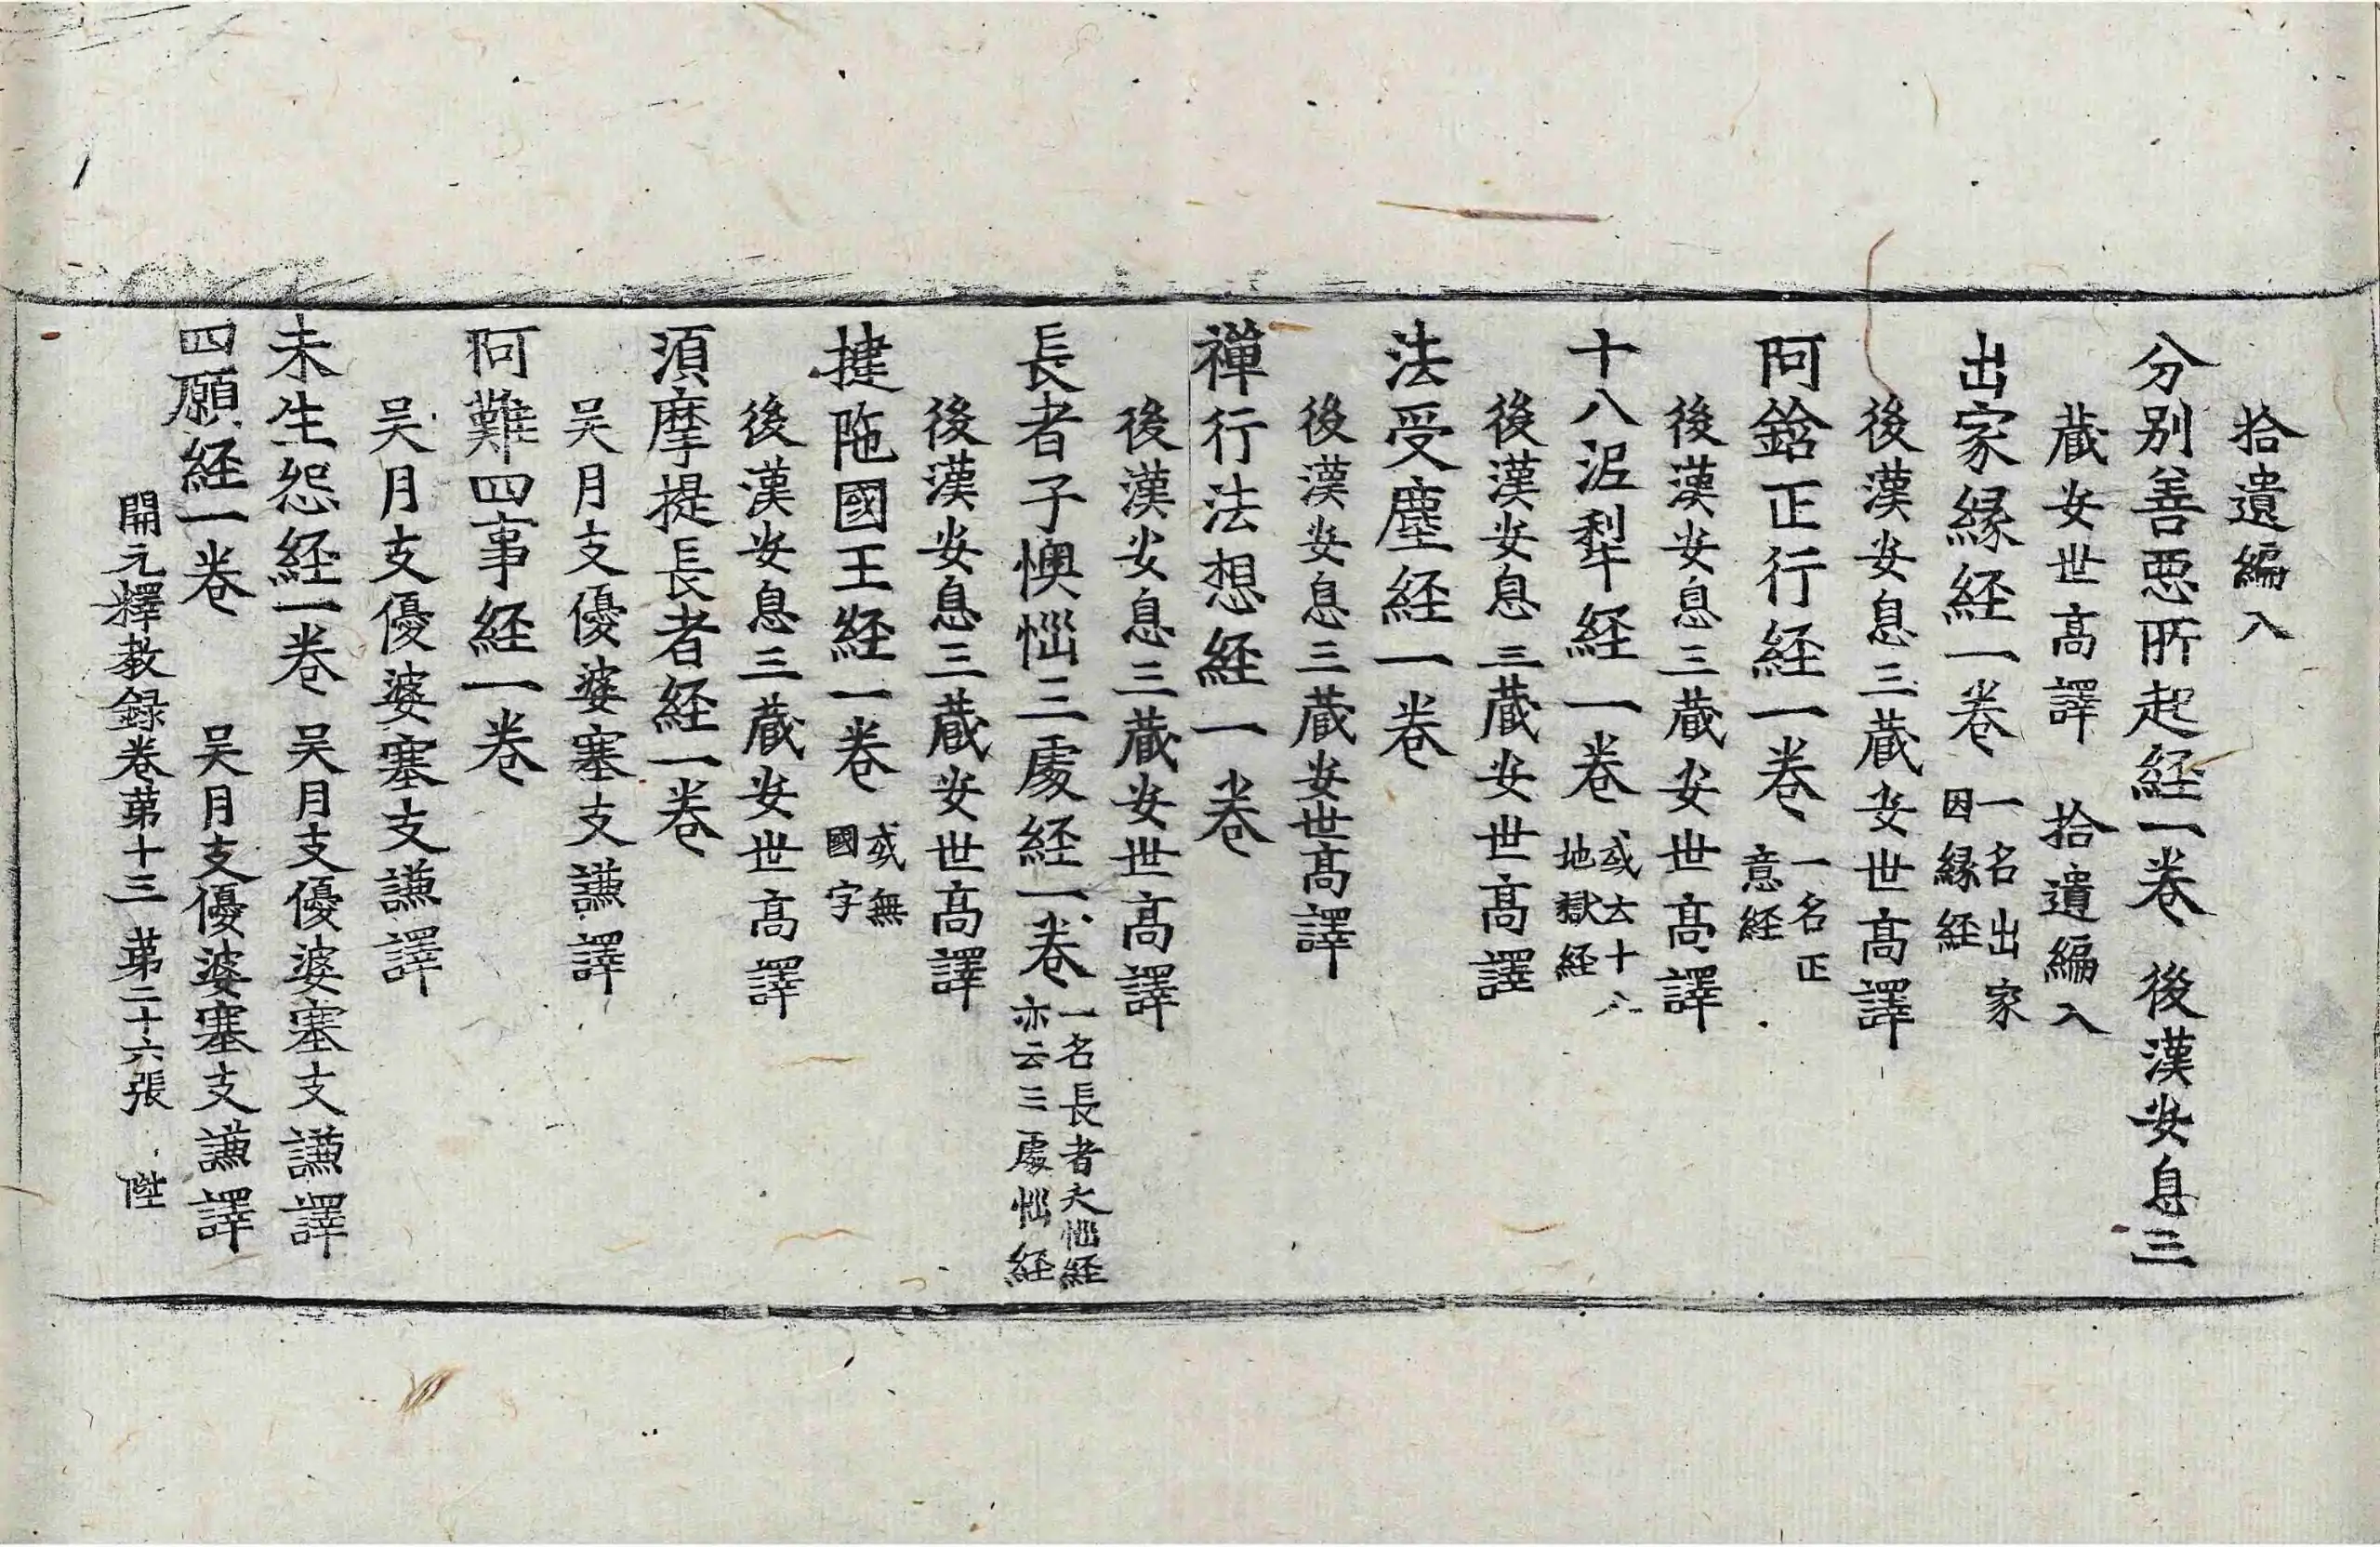 拾遺編入
分别善惡所起経一卷 後漢安息三
藏安世高譯 拾遺編入
出家縁経一卷 一名出家因縁経
後漢安息三藏安世高譯
阿鋡正行経一卷 一名正意経
後漢安息三藏安世髙譯
十八泥犁経一卷 或云十八地獄経
後漢安息三藏安世高譯
法受塵経一卷
後漢安息三藏安世髙譯
禪行法想経一卷
後漢安息三藏安世高譯
長者子懊惱三處経一卷 一名長者夭惱経亦云三處惱経
後漢安息三藏安世高譯
揵陁國王経一卷 或無國字
後漢安息三藏安世高譯
須摩提長者経一卷
吴月支優婆塞支謙譯
阿難四事経一卷
吴月支優婆塞支謙譯
未生怨経一卷 吴月支優婆塞支謙譯
四願経一卷 吴月支優婆塞支謙譯
開元釋教録卷苐十三 苐二十六張 陛